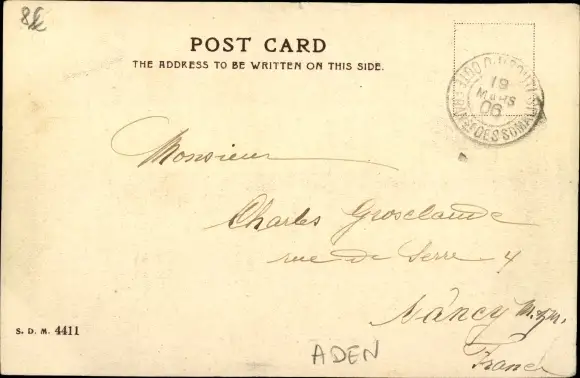 POST CARD
THE ADDRESS TO BE WRITTEN ON THIS SIDE.
19
MARS
06
Monsieur
Charles Grosclaude
rue de Serre 4
Nancy M. & M.
France
S. D. M. 4411
ADEN